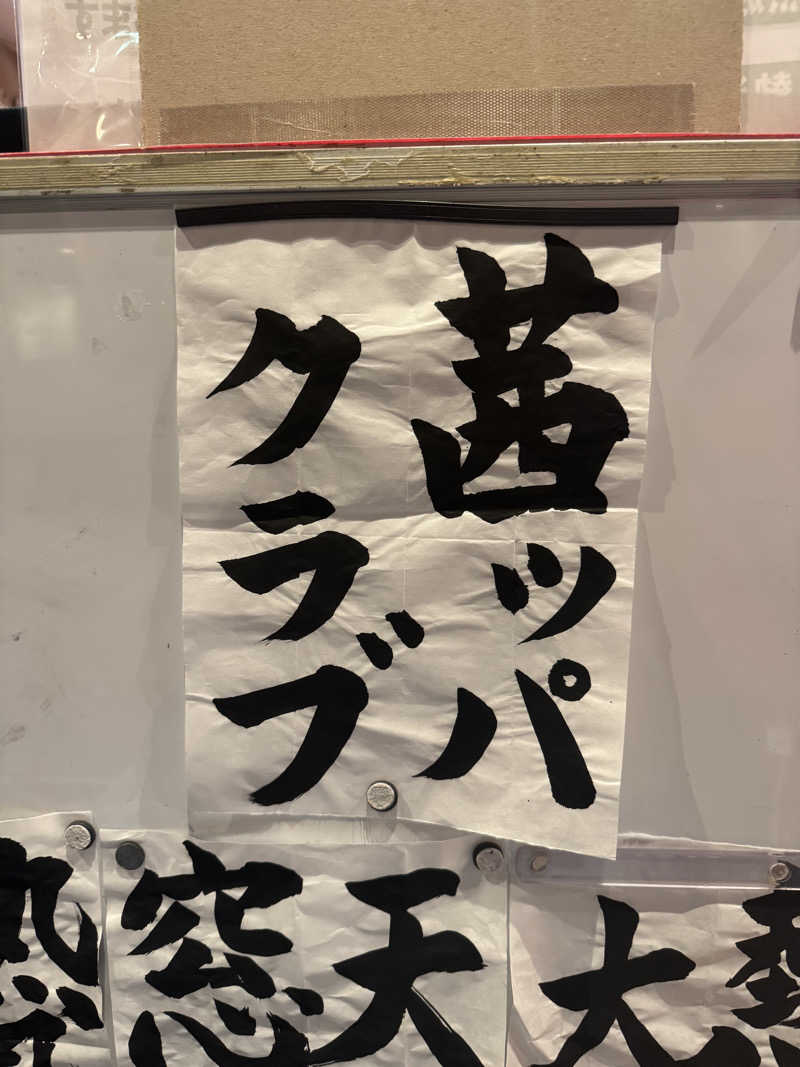 茜ッパ
クラブ
天
窓
大